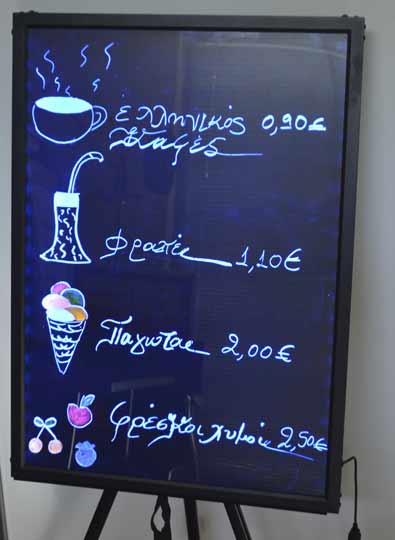 ἑλληνικός 0,90€
Καφές
Φραπέ 1,10€
Παγωτάκι 2,00€
φρέσκοι χυμοί 2,50€